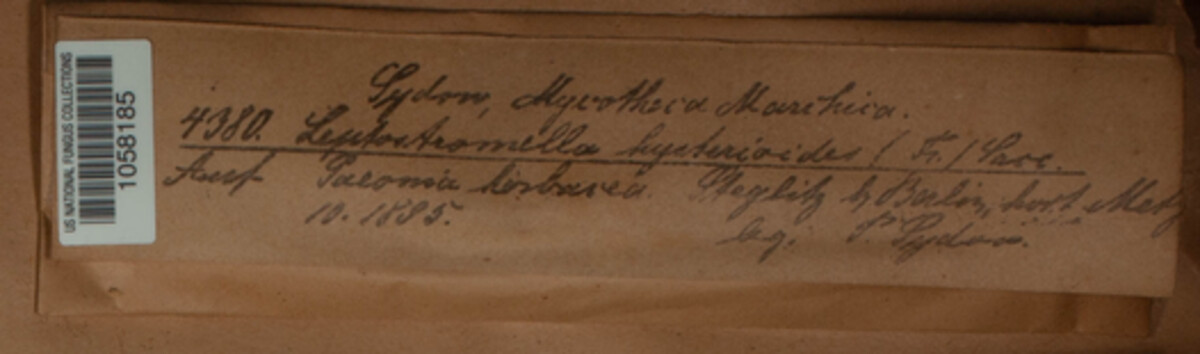 US NATIONAL FUNGUS COLLECTIONS
1058185
Sydow, Mycotheca Marchica.
4380. Leptostromella hysterioides (Fr.) Sacc.
Auf Paeonia herbacea. Steglitz b. Berlin, hort. Metz
10. 1885.
leg. P. Sydow.